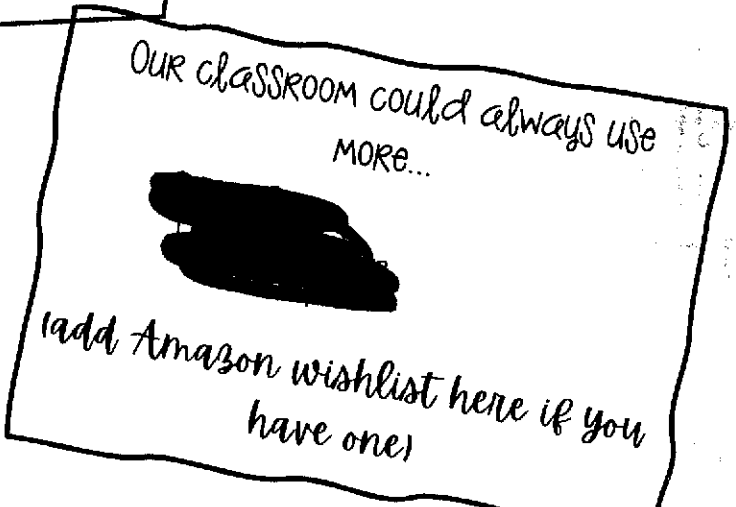 OUR classROOM could always use
MORe...
(add Amazon wishlist here if you
have one)